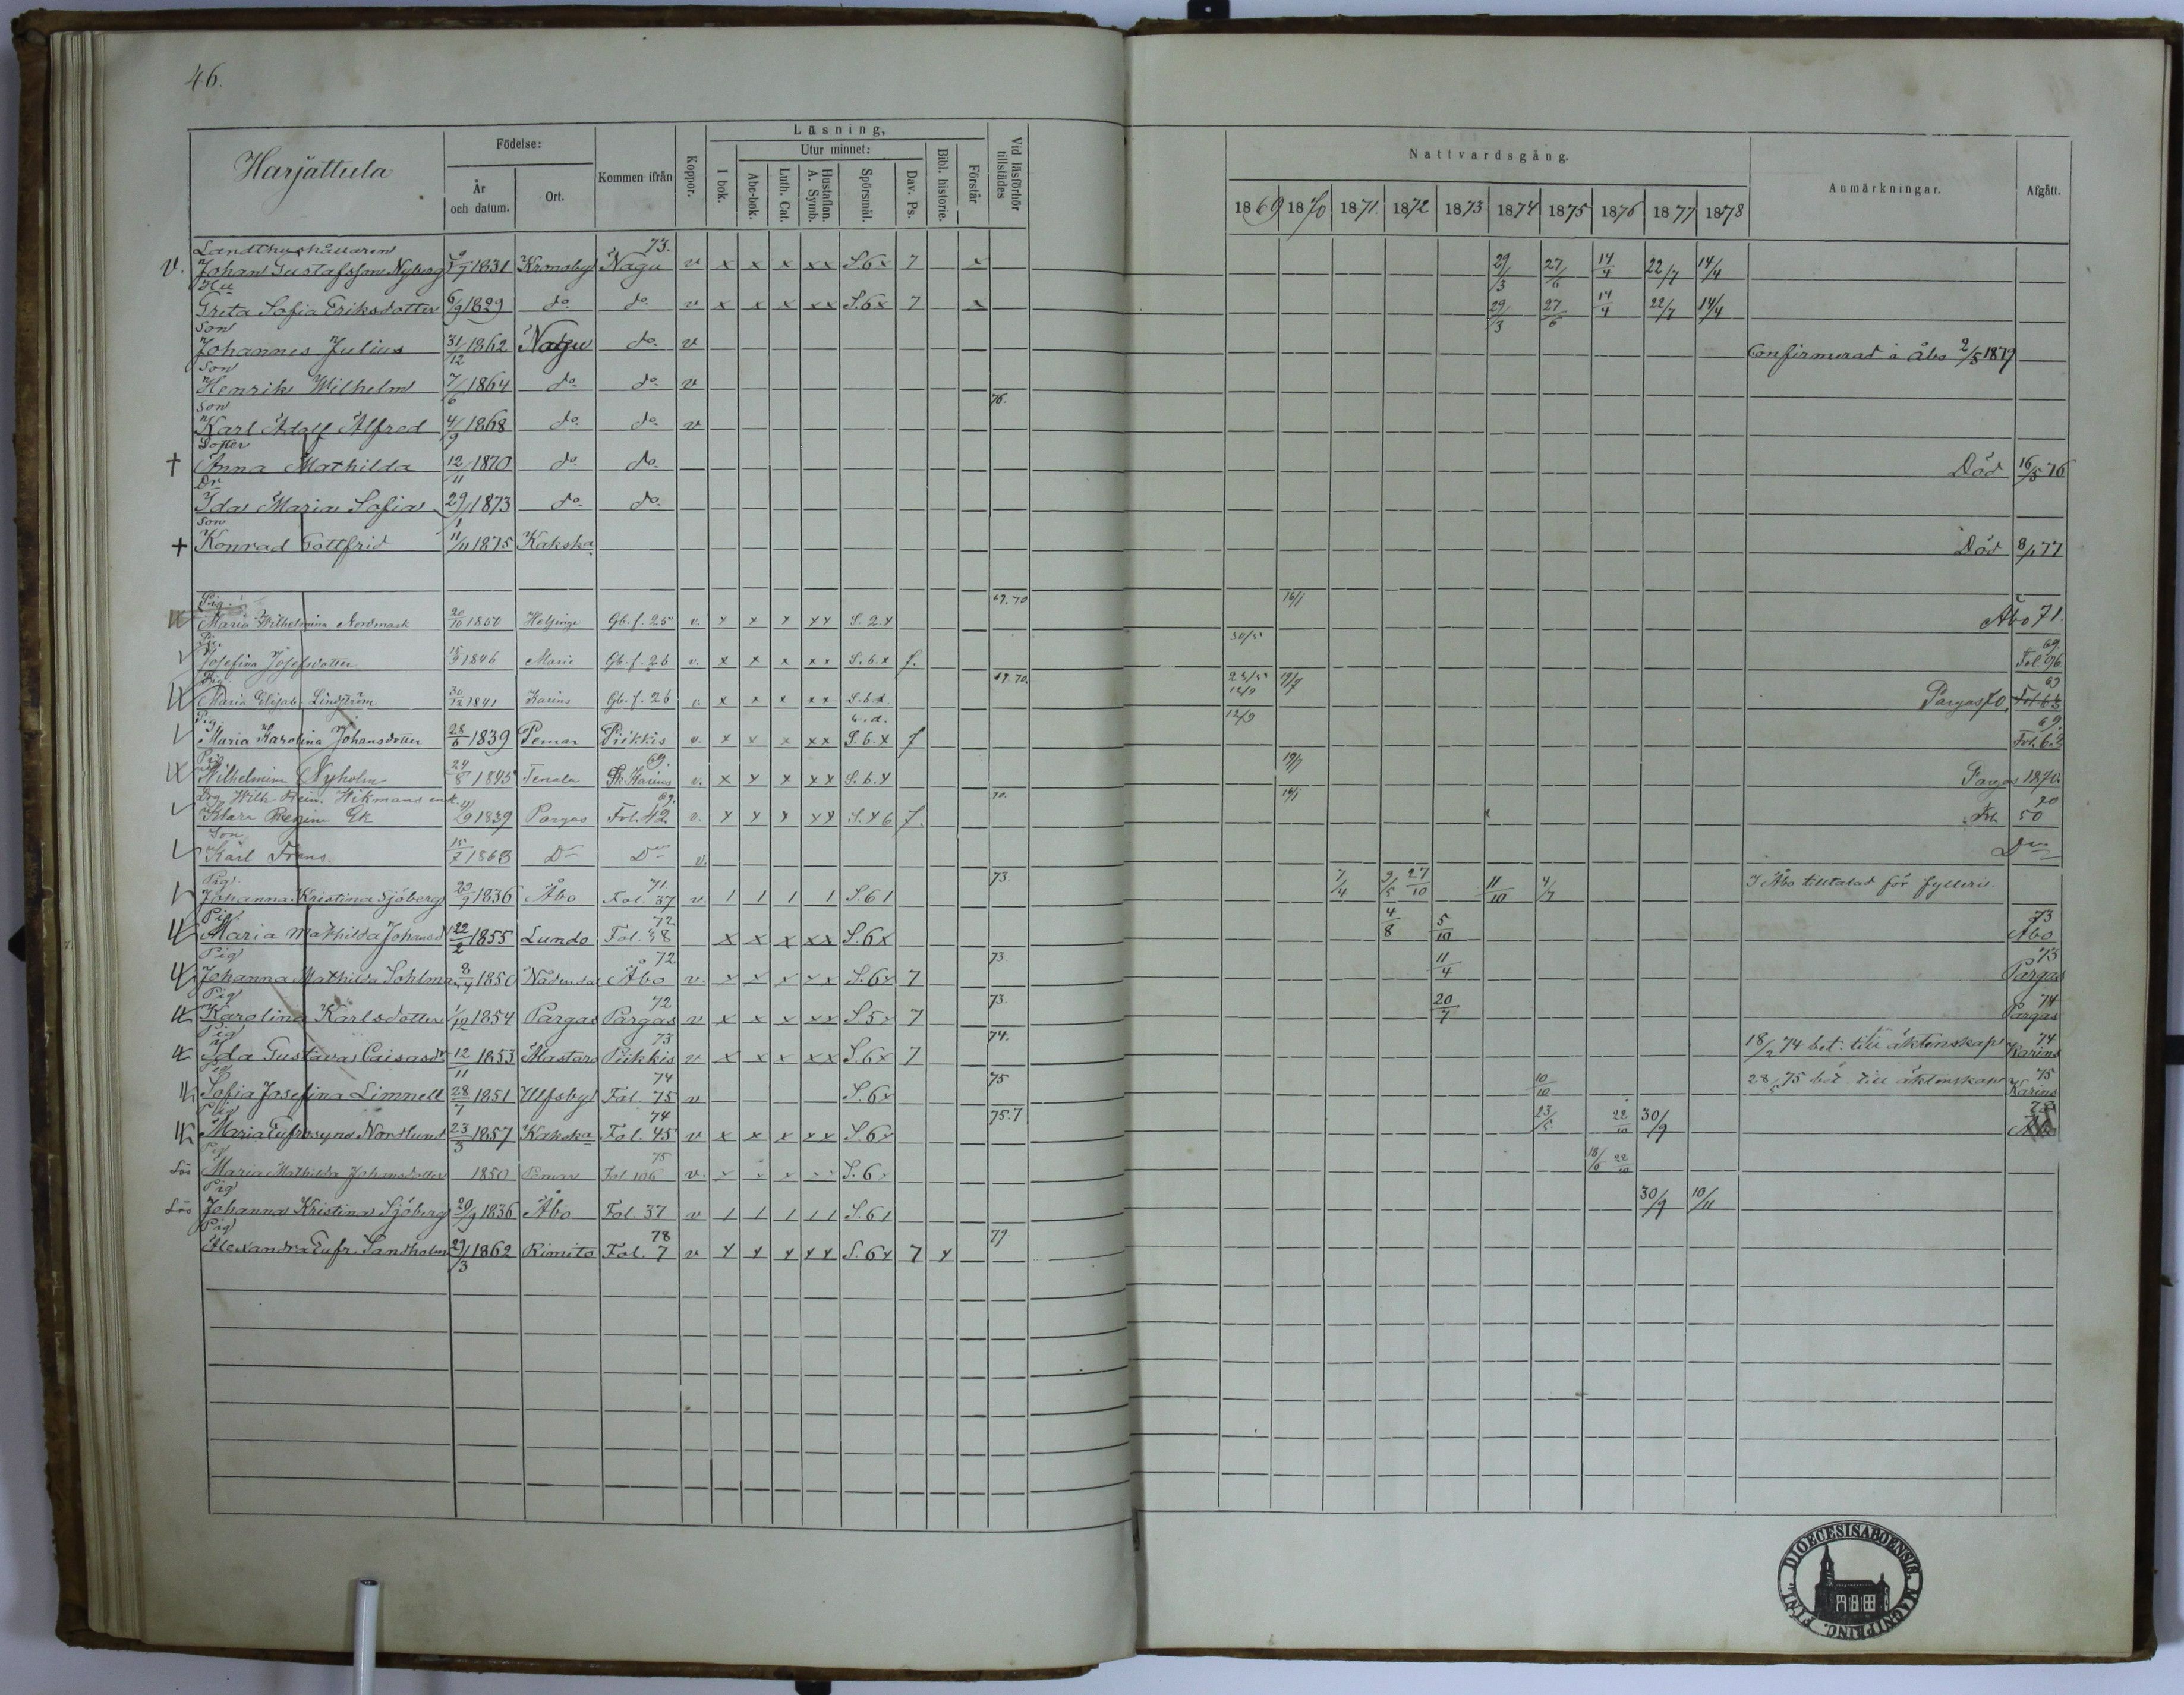 46.
Harjattula
Födelse:
År och datum.
Ort.
Kommen ifrån
Koppor.
Läsning,
I bok.
Utur minnet:
Abc-bok.
Luth. Cat.
Hustaflan. A. Symb.
Spörsmål.
Dav. Ps.
Bibl. historie.
Förstår
Vid läsförhör tillstädes
Nattvardsgång.
1869 1870 1871 1872 1873 1874 1875 1876 1877 1878
Anmärkningar.
Afgått.
Landthushållaren 73.
v. Johan Gustafsson Nyberg 1831 Kronoby Nagu v x x x xx S.6x 7 x 29/3 27/6 14/4 22/7 14/4
Hu
Greta Sofia Eriksdotter 6/9 1829 do do v x x x xx S.6x 7 x 29/3 27/6 14/4 22/7 14/4
Son
Johannes Julius 31/12 1862 Nagu do v Confirmerad i Åbo 2/5 1879
Son
Henrik Wilhelm 7/6 1864 do do v
Son 76.
Karl Adolf Alfred 4/9 1868 do do v
Dotter
† Anna Mathilda 12/11 1870 do do Död 16/5 76
Dr
Ida Maria Sofia 29/1 1873 do do
Son
† Konrad Gottfrid 11/11 1875 Kakska Död 8/1 77
Pig. 69.70 16/1
Maria Wilhelmina Nordmark 20/10 1850 Helsinge Gb. f. 25 v. x x x xx S. 2.x Åbo 71.
Pig. 30/5 69
Josefina Josefsdotter 15/9 1846 Marie Gb. f. 26 v. x x x xx S.6.x f. Fol. 96
Pig 69.70. 23/5 12/9 19/7 69
Maria Elisab. Lindström 30/12 1841 Karins Gb. f. 26 v. x x x xx S.6.x Pargas 70
Pig. 12/9 69
Maria Karolina Johansdotter 28/6 1839 Pemar Piikkis v. x x x xx S.6.x f Fol. 62
Pig 69. 19/7
Wilhelmina Nyholm 24/8 1845 Tenala St. Karins v. x x x xx S.6.x Pargas 1870.
Drg Wilh. Rein. Wikmans enk. 69. 70. 16/1 70
Klara Regina Ek 11/9 1839 Pargas Fol. 42 v. x x x xx S.x 6 f. Fol. 50
Son
Karl Frans 15/7 1863 Do Do v. Do
Pig. 71 73. 7/4 9/5 27/10 11/10 4/7
Johanna Kristina Sjöberg 20/9 1836 Åbo Fol. 37 v 1 1 1 1 S.61 I Åbo tilltalad för fylleri.
Pig. 72 4/8 5/10 73
Maria Mathilda Johansd 22/2 1855 Lundo Fol. 38 x x x xx S.6x Åbo
Pig 72 73. 11/4 73
Johanna Mathilda Sohlman 1850 Nådendal Åbo v. x x x xx S.6x 7 Pargas
Pig 72 73. 20/7 74
Karolina Karlsdotter 1/10 1854 Pargas Pargas v x x x xx S.5x 7 Pargas
Pig 73 74. 74
Ida Gustava Caisasdr 12/11 1853 Mastaro Piikkis v x x x xx S.6x 7 18/2 74 bet. till äktenskap Karins
Pig 74 75 10/10 75
Sofia Josefina Limnell 28/7 1851 Ulfsby Fol. 75 v S.6x 28/5 75 bet. till äktenskap Karins
Pig 74 75.7 23/5 22/10 30/9 78
Maria Eufrosyne Nordlund 23/3 1857 Kakska Fol. 45 v x x x xx S.6x Åbo
Pig 75 18/6 22/10
Lös Maria Mathilda Johansdotter 1850 Pemar Fol 106 v. x x x xx S.6x
Pig 30/9 10/11
Lös Johanna Kristina Sjöberg 20/9 1836 Åbo Fol. 37 v 1 1 1 11 S.61
Pig 78 79
Alexandra Eufr. Sandholm 29/3 1862 Rimito Fol. 7 v x x x xx S.6x 7 x
DIOECESIS ABOENSIS. MAGNI PRINC. FINL.